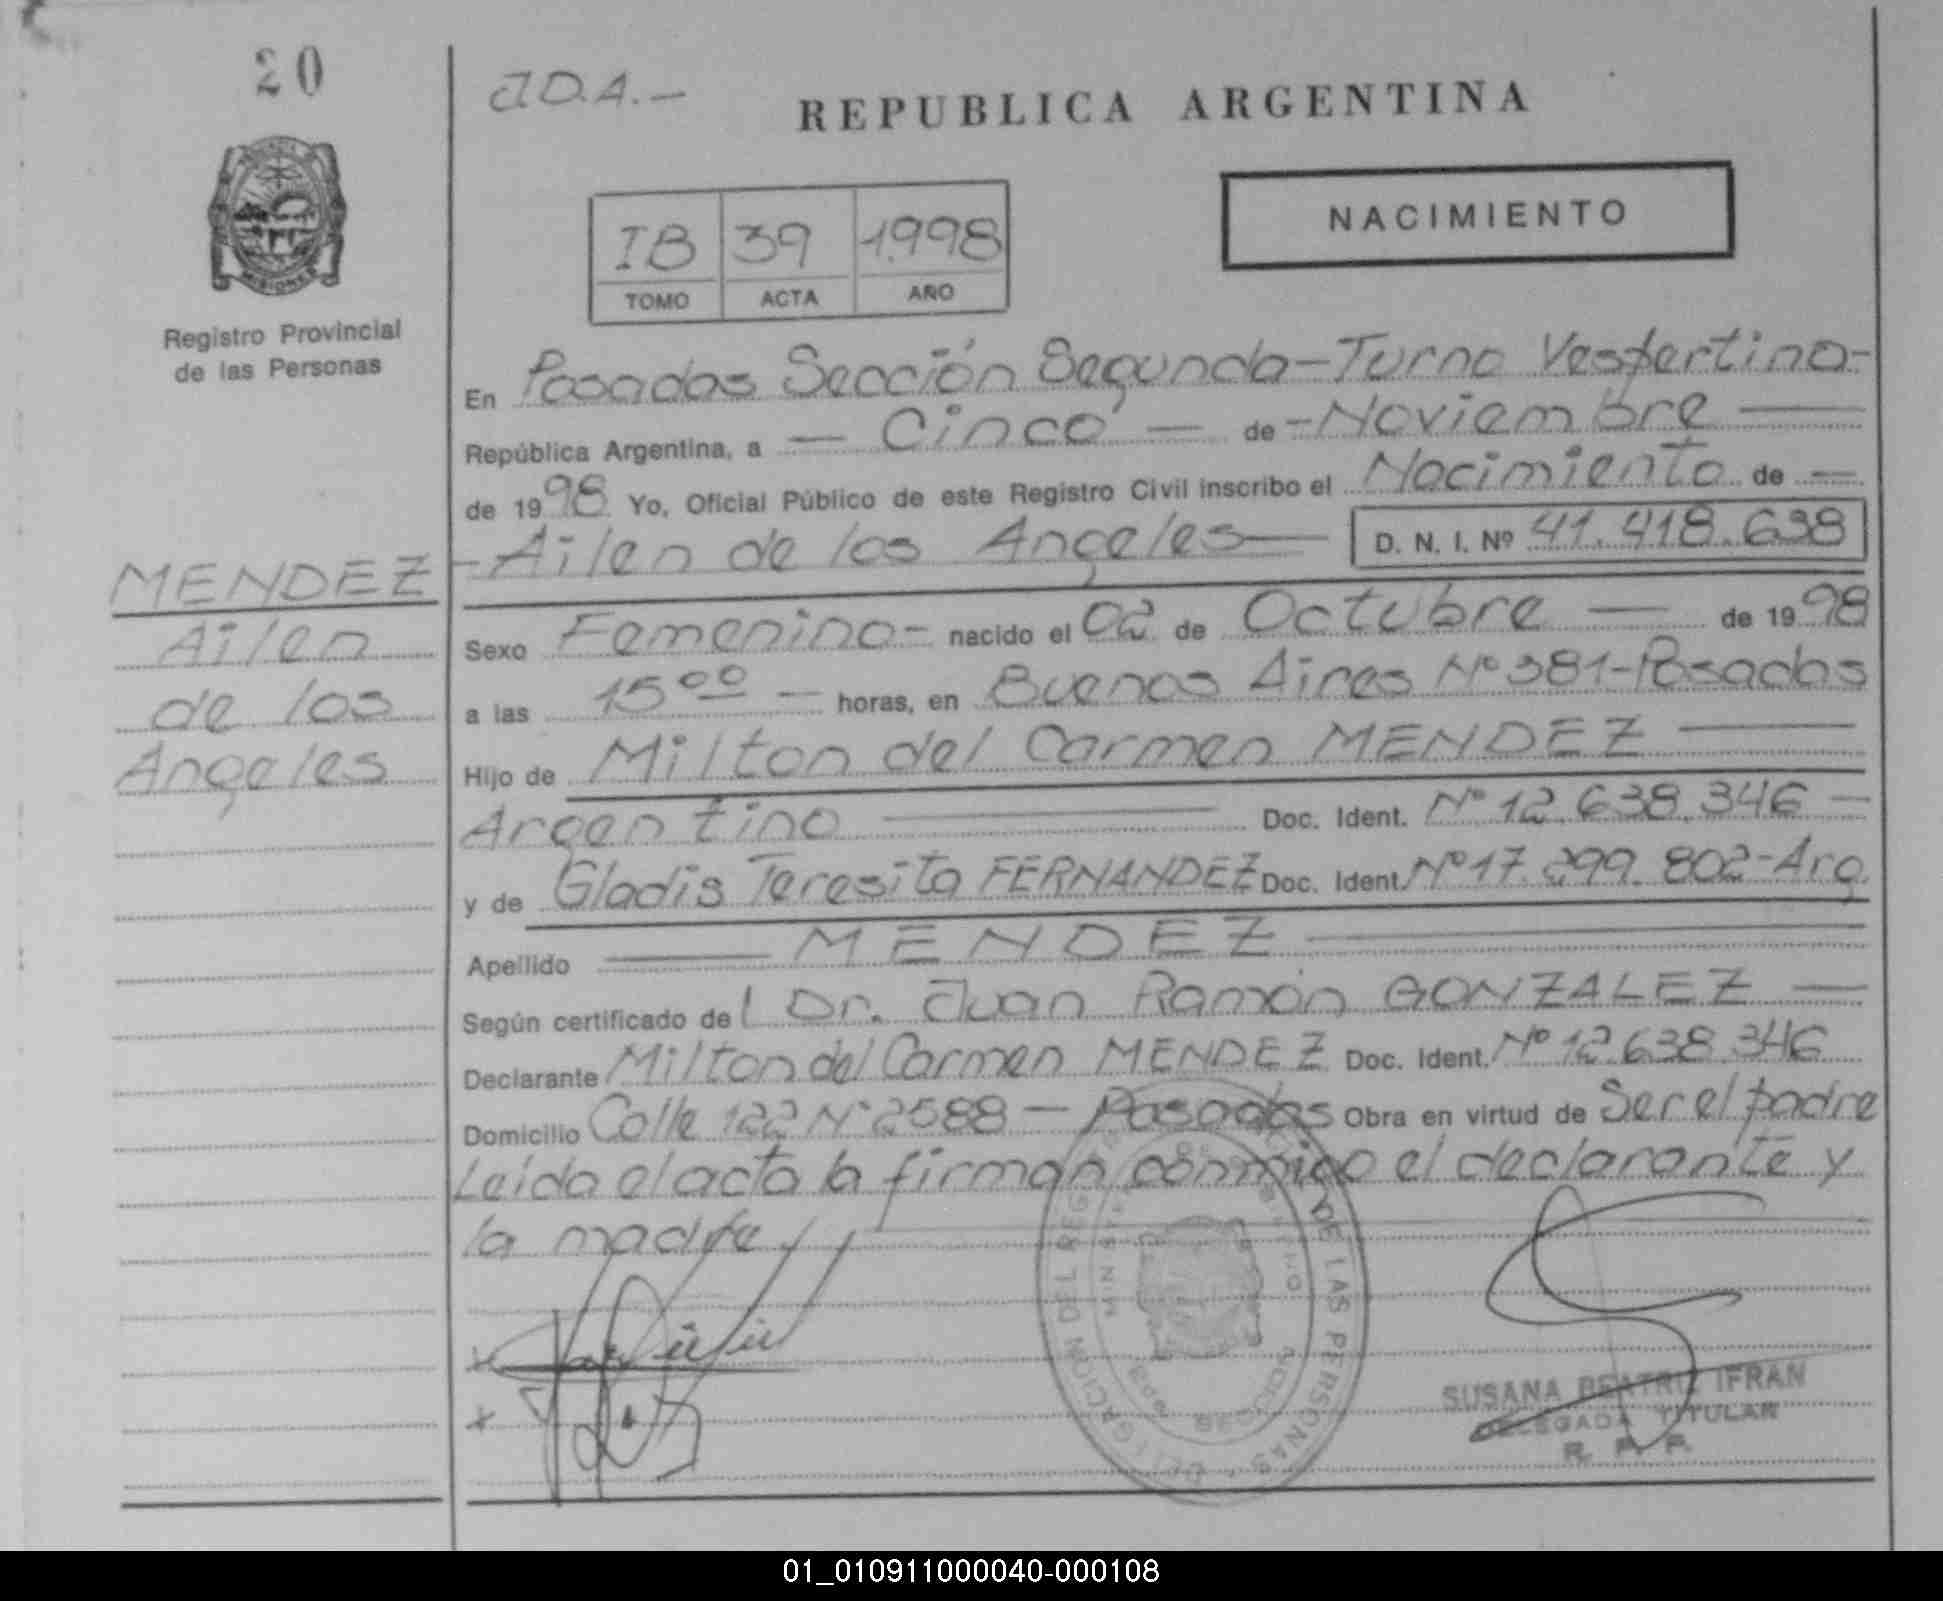 20
J.D.A.-
REPUBLICA ARGENTINA
MISIONES
Registro Provincial
de las Personas
IB 39 1998
TOMO ACTA AÑO
NACIMIENTO
En Posadas Sección Segunda-Turno Vespertino-
República Argentina, a — Cinco — de - Noviembre —
de 1998 Yo, Oficial Público de este Registro Civil inscribo el Nacimiento de —
- Ailen de los Angeles — D. N. I. Nº 41.418.638
MENDEZ
Ailen
de los
Angeles
Sexo Femenino - nacido el 02 de Octubre — de 1998
a las 15 00 — horas, en Buenos Aires Nº 381-Posadas
Hijo de Milton del Carmen MENDEZ —
Argentino — Doc. Ident. Nº 12.638.346 —
y de Gladis Teresita FERNANDEZ Doc. Ident. Nº 17.299.802-Arg.
Apellido — MENDEZ —
Según certificado del Dr. Juan Ramón GONZALEZ —
Declarante Milton del Carmen MENDEZ Doc. Ident. Nº 12.638.346
Domicilio Calle 122 Nº 2588 — Posadas Obra en virtud de Ser el padre
Leída el acta la firman conmigo el declarante y
la madre
DELEGACION DEL REGISTRO DE LAS PERSONAS
SUSANA BEATRIZ IFRAN
DELEGADA TITULAR
R. P. P.
01_010911000040-000108